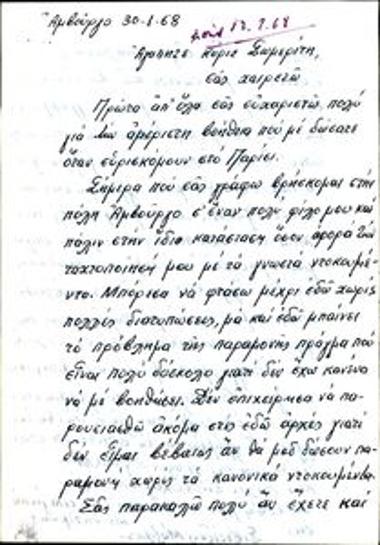 Ἁμβοῦργο 30-1-68
12.2.68
Ἀγαπητέ Κύριε Σωμερίτη,
σᾶς χαιρετῶ
Πρῶτα ἀπ' ὅλα σᾶς εὐχαριστῶ πολύ
γιά τήν ἀμέριστη βοήθεια πού μέ δώσατε
ὅταν εὑρισκόμουν στό Παρίσι.
Σήμερα πού σᾶς γράφω βρίσκομαι στήν
πόλη Ἁμβοῦργο σ' ἕναν πολύ φίλο μου καί
πάλιν στήν ἴδια κατάσταση ὅσον ἀφορᾶ τήν
τακτοποίησή μου μέ τά γνωστά ντοκουμέ-
ντα. Μπόρεσα νά φτάσω μέχρι ἐδῶ χωρίς
πολλές διατυπώσεις, μά καί ἐδῶ μπαίνει
τό πρόβλημα τῆς παραμονῆς πρᾶγμα πού
εἶναι πολύ δύσκολο γιατί δέν ἔχω κανένα
νά μέ βοηθήσει. Δέν ἐπιχείρησα νά πα-
ρουσιασθῶ ἀκόμα στίς ἐδῶ ἀρχές γιατί
δέν εἶμαι βέβαιος ἄν θά μοῦ δώσουν πα-
ραμονή χωρίς τά κανονικά ντοκουμέντα.
Σᾶς παρακαλῶ πολύ ἄν ἔχετε καί